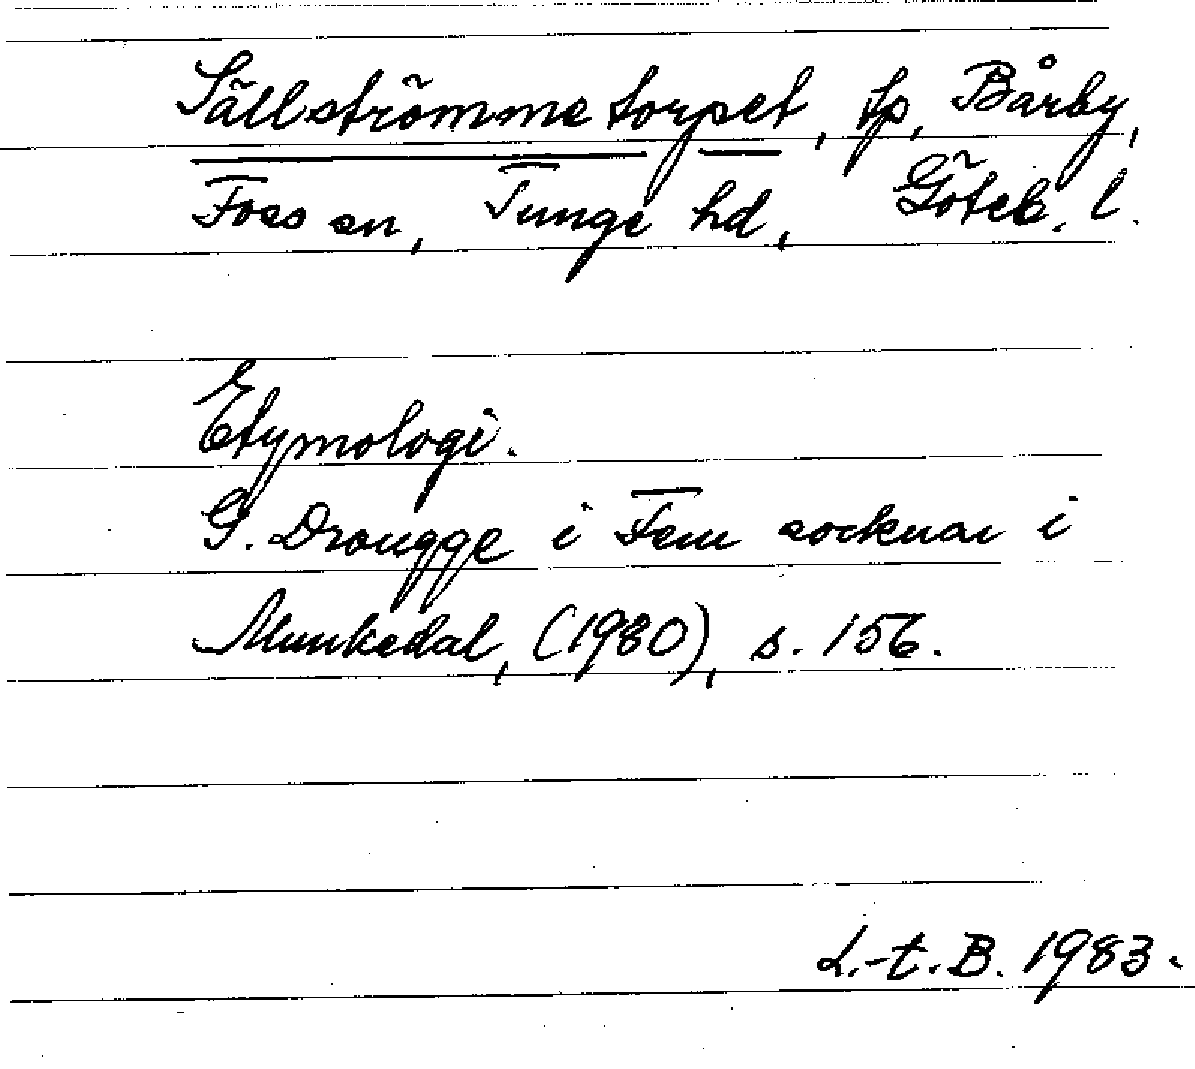 Sällströmmetorpet, tp, Bårby,
Foss sn, Tunge hd, Göteb. l.
Etymologi.
G. Drougge i Fem socknar i
Munkedal, (1980), s. 156.
L.-t. B. 1983.